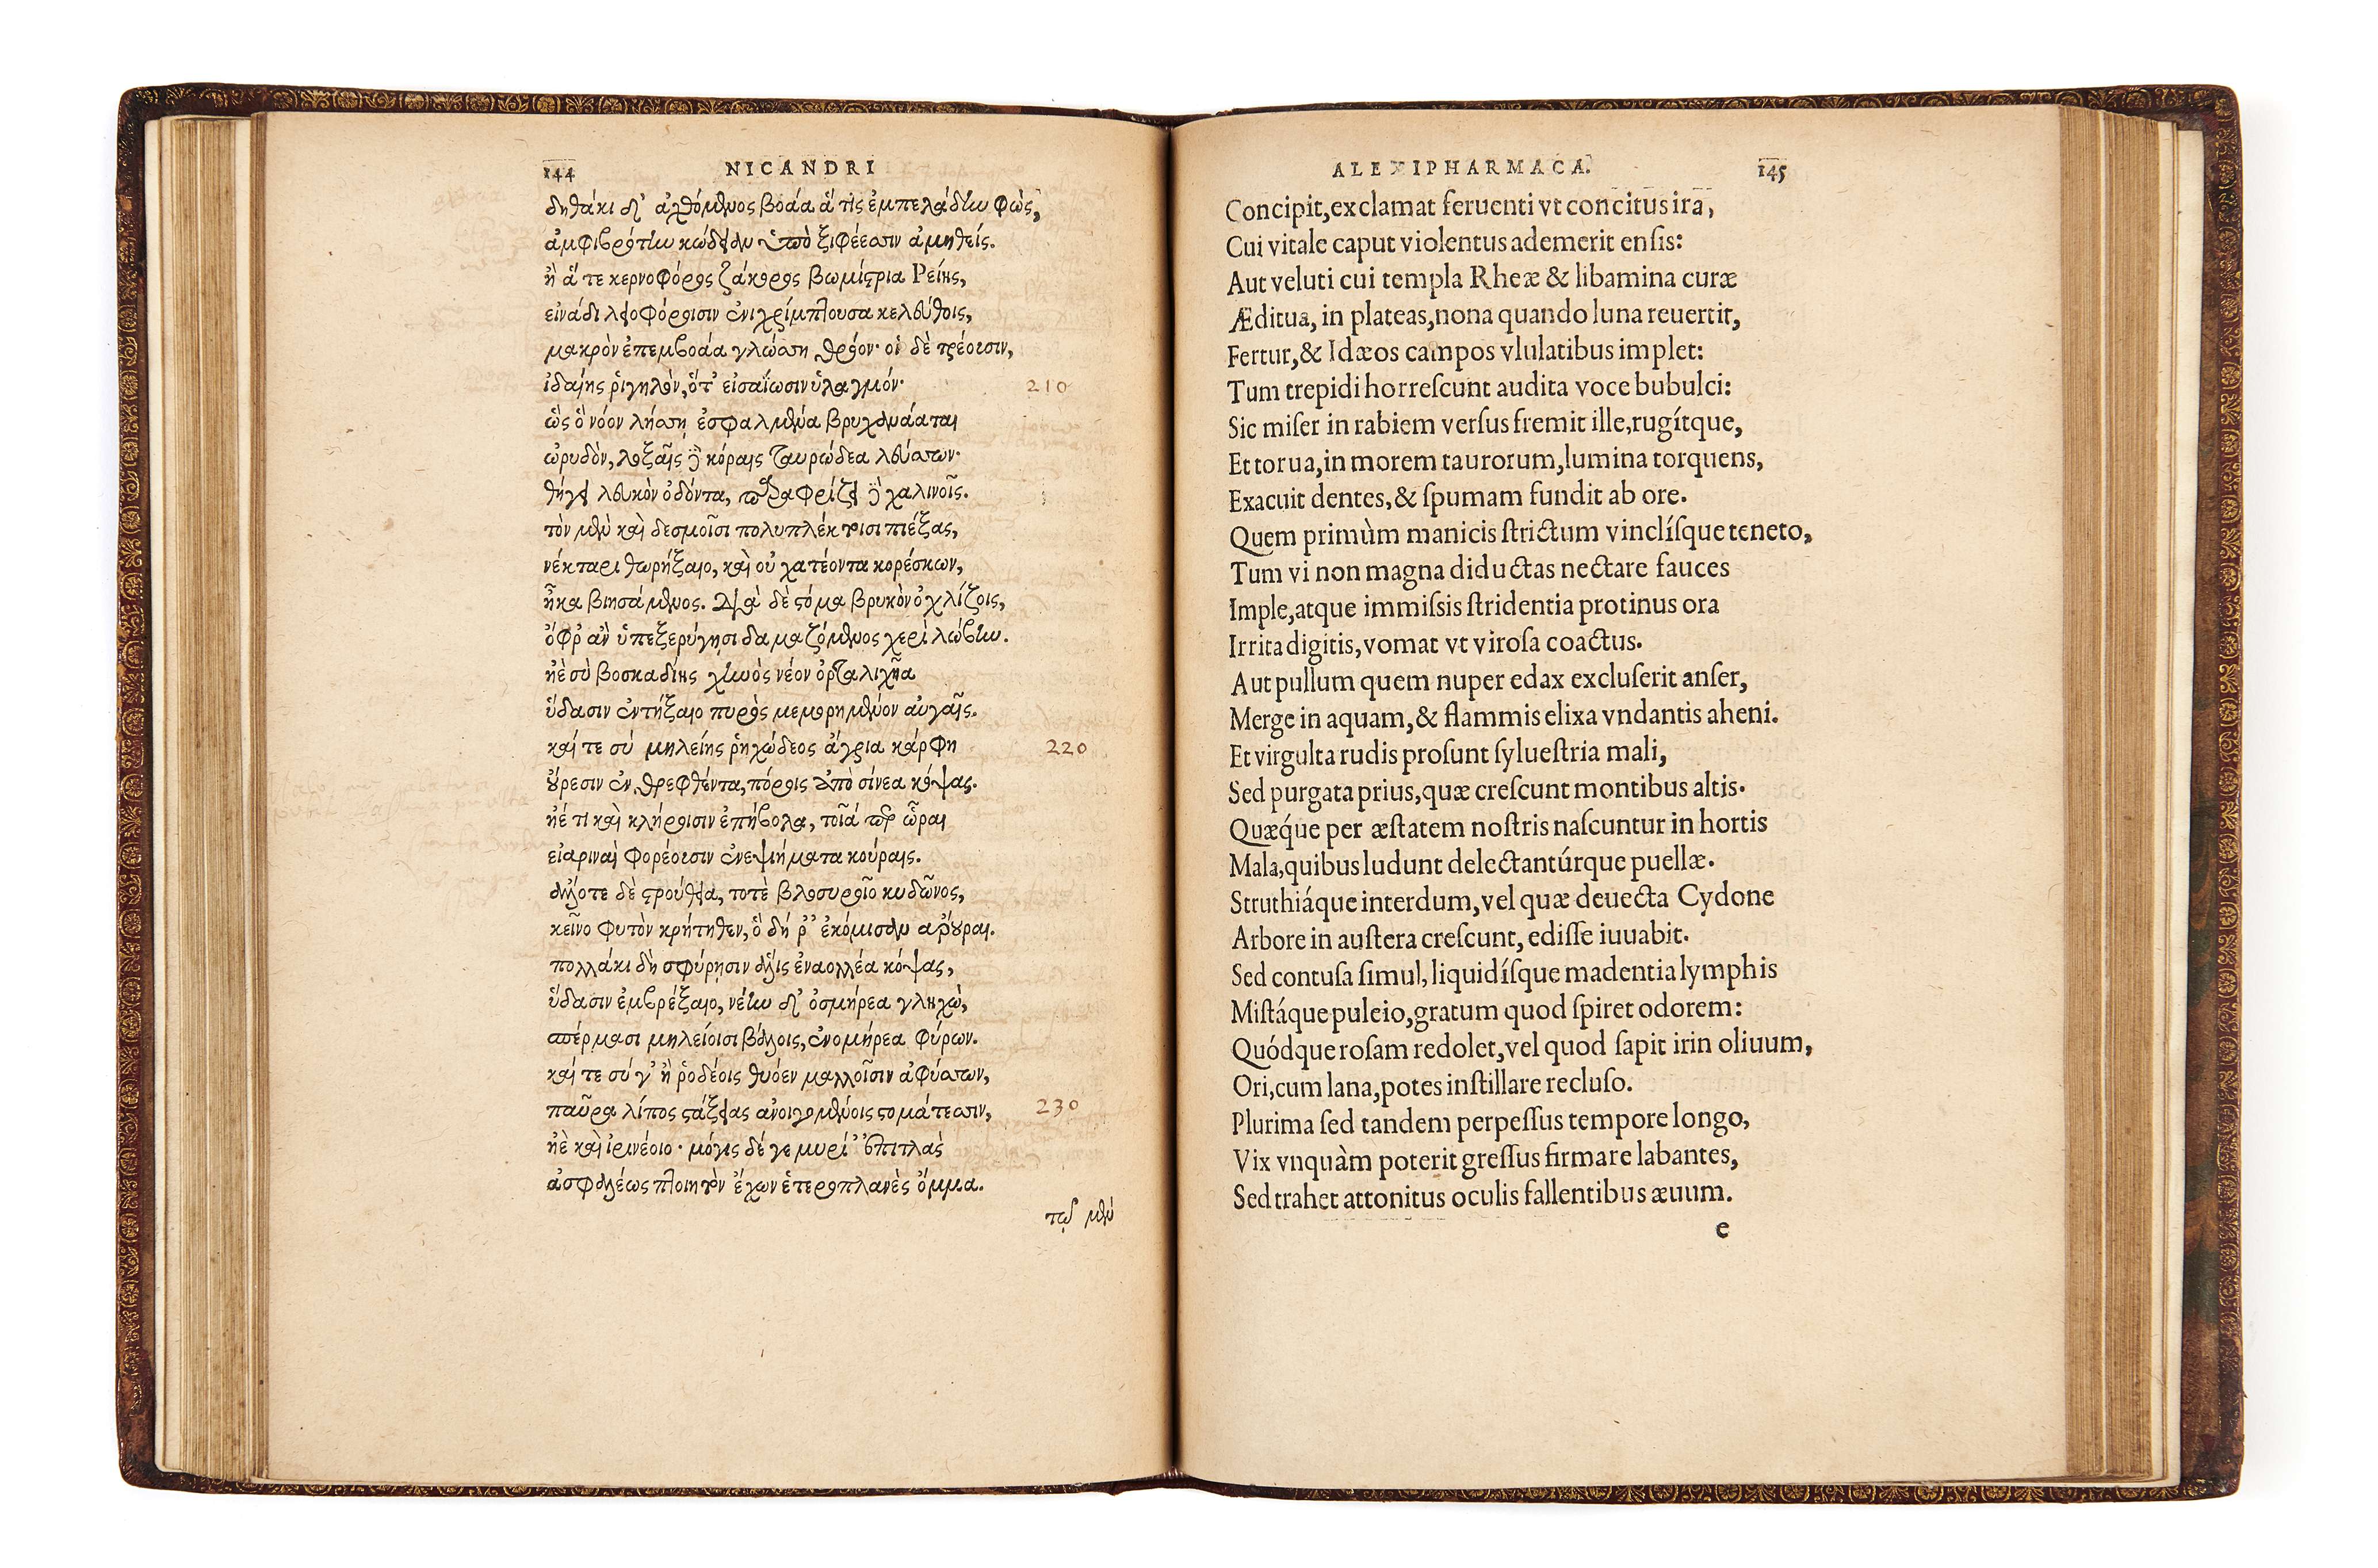 144 NICANDRI
δηθάκι δ' ἀχθόμενος βοάα ἅ τις ἐμπελάδην φὼς,
ἀμφιβρότην κώδειαν ὑπὸ ξιφέεσσιν ἀμηθείς.
ἢ ἅ τε κερνοφόρος ζάκορος βωμίστρια Ρείης,
εἰνάδι λαοφόροισιν ἐνιχρίμπτουσα κελεύθοις,
μακρὸν ἐπεμβοάα γλώσση θρόον· οἱ δὲ τρέουσιν,
ἰδαίης ῥιγηλὸν, ὅτ' εἰσαΐωσιν ὑλαγμόν· 210
ὣς ὃ νόον λύσση ἐσφαλμένα βρυχανάαται
ὠρυδὸν, λοξαῖς δὲ κόραις ταυρώδεα λεύσσων·
θήγει λευκὸν ὀδόντα, παραφρίζει δὲ χαλινοῖς.
τὸν μὲν καὶ δεσμοῖσι πολυπλέκτοισι πιέξας,
νέκταρι θωρήξαιο, καὶ οὐ χατέοντα κορέσκων,
ἦκα βιησάμενος. διὰ δὲ στόμα βρυκὸν ὀχλίζοις,
ὄφρ' ἂν ὑπεξερύγησι δαμαζόμενος χερὶ λώβην.
ἠὲ σὺ βοσκαδίης χηνὸς νέον ὀρταλιχῆα
ὕδασιν ἐντήξαιο πυρὸς μεμορημένον αὐγαῖς.
καί τε σύ μηλείης ῥηχώδεος ἄγρια κάρφη 220
οὔρεσιν ἐνθρεφθέντα, πόροις ἀπὸ σίνεα κόψας.
ἠέ τι καὶ κλήροισιν ἐπήβολα, τοῖά περ ὧραι
εἰαριναὶ φορέουσιν ἐνεψιήματα κούραις.
ἄλλοτε δὲ στρούθεια, τοτὲ βλοσυροῖο κυδῶνος,
κεῖνο φυτὸν κρήτηθεν, ὃ δή ῥ' ἐκόμισσαν ἄρουραι.
πολλάκι δὴ σφύρησιν ἅλις ἐναολλέα κόψας,
ὕδασιν ἐμβρέξαιο, νέην δ' ὀσμήρεα γληχὼ,
σπέρμασι μηλείοισι βάλοις, ἐνομήρεα φύρων.
καί τε σύ γ' ἢ ῥοδέοις θυόεν μαλλοῖσιν ἀφύσσων,
παῦρα λίπος στάξειας ἀνοιγομένοις στομάτεσσιν, 230
ἠὲ καὶ ἰρινέοιο· μόγις δέ γε μυρί' ἐπιτλὰς
ἀσφαλέως πλοιητὸν ἔχων ἑτεροπλανὲς ὄμμα.
τῷ μὲν
ALEXIPHARMACA. 145
Concipit, exclamat feruenti vt concitus ira,
Cui vitale caput violentus ademerit ensis:
Aut veluti cui templa Rheæ & libamina curæ
Æditua, in plateas, nona quando luna reuertit,
Fertur, & Idæos campos vlulatibus implet:
Tum trepidi horrescunt audita voce bubulci:
Sic miser in rabiem versus fremit ille, rugítque,
Et torua, in morem taurorum, lumina torquens,
Exacuit dentes, & spumam fundit ab ore.
Quem primùm manicis strictum vinclísque teneto,
Tum vi non magna diductas nectare fauces
Imple, atque immissis stridentia protinus ora
Irrita digitis, vomat vt virosa coactus.
Aut pullum quem nuper edax excluserit anser,
Merge in aquam, & flammis elixa vndantis aheni.
Et virgulta rudis prosunt syluestria mali,
Sed purgata prius, quæ crescunt montibus altis.
Quæque per æstatem nostris nascuntur in hortis
Mala, quibus ludunt delectantúrque puellæ.
Struthiáque interdum, vel quæ deuecta Cydone
Arbore in austera crescunt, edisse iuuabit.
Sed contusa simul, liquidísque madentia lymphis
Mistáque puleio, gratum quod spiret odorem:
Quódque rosam redolet, vel quod sapit irin oliuum,
Ori, cum lana, potes instillare recluso.
Plurima sed tandem perpessus tempore longo,
Vix vnquàm poterit gressus firmare labantes,
Sed trahet attonitus oculis fallentibus æuum.
e